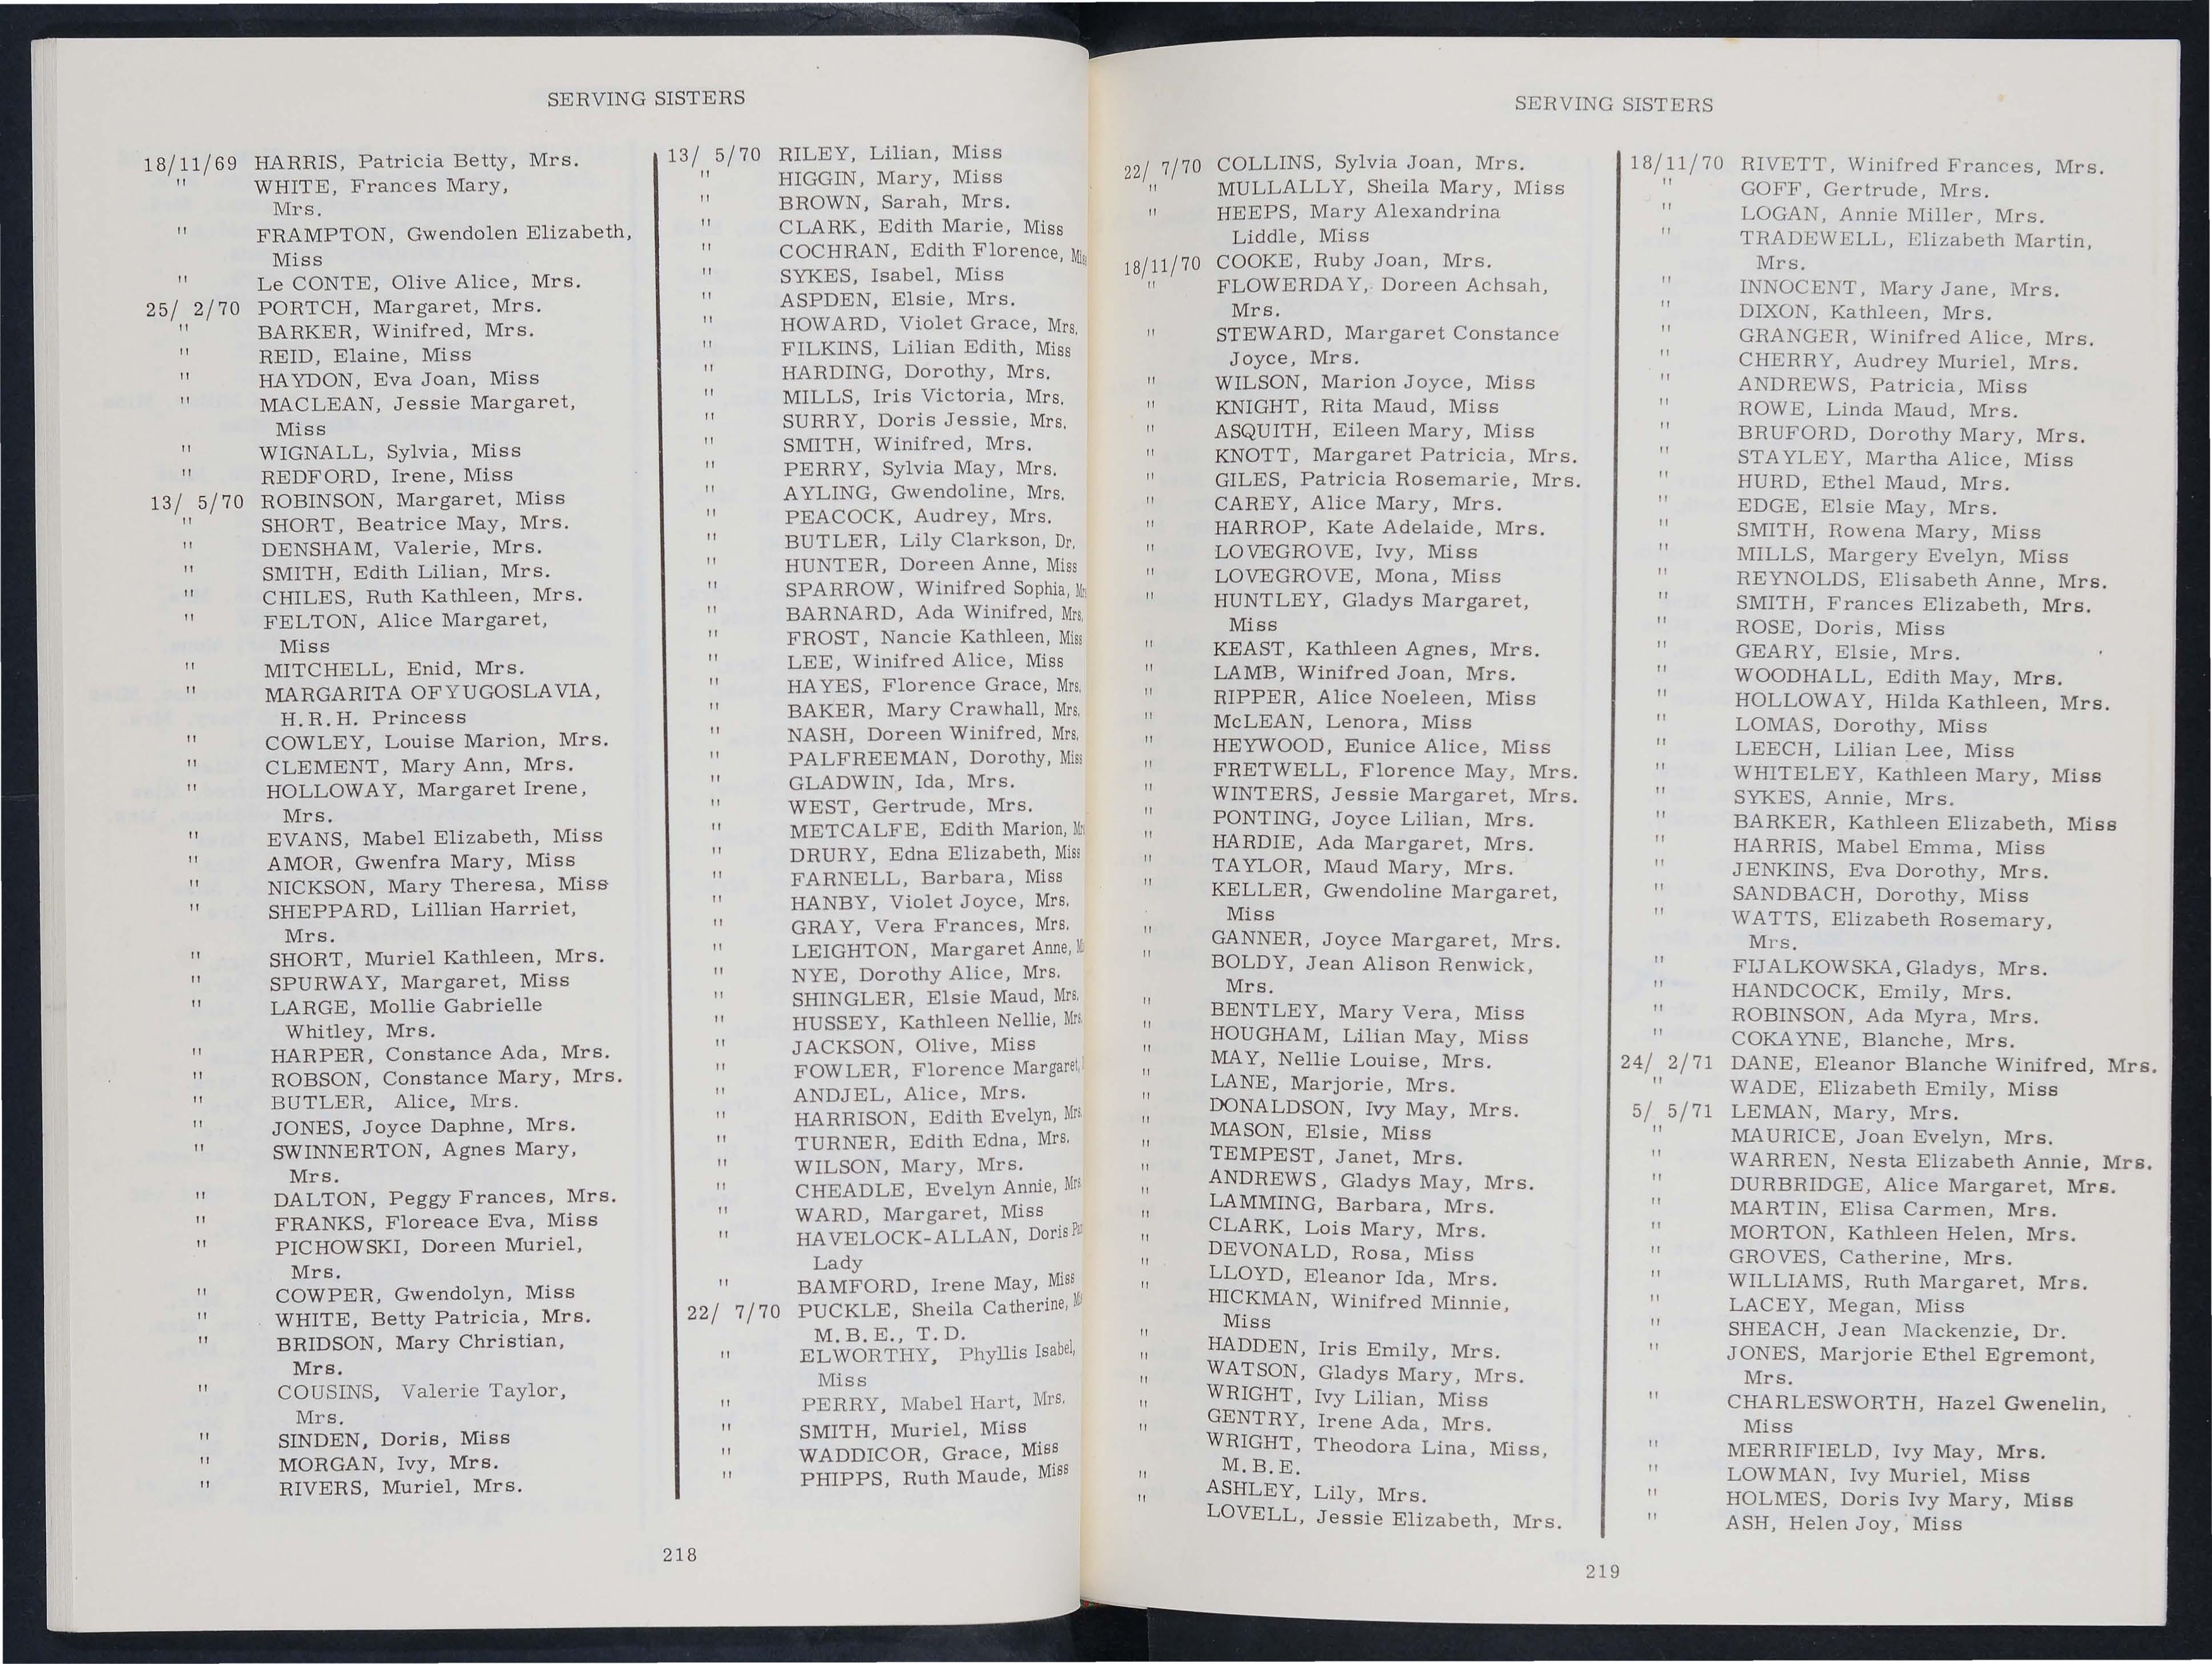 SERVING SISTERS
18/11/69 HARRIS, Patricia Betty, Mrs.
" WHITE, Frances Mary,
Mrs.
" FRAMPTON, Gwendolen Elizabeth,
Miss
" Le CONTE, Olive Alice, Mrs.
25/ 2/70 PORTCH, Margaret, Mrs.
" BARKER, Winifred, Mrs.
" REID, Elaine, Miss
" HAYDON, Eva Joan, Miss
" MACLEAN, Jessie Margaret,
Miss
" WIGNALL, Sylvia, Miss
" REDFORD, Irene, Miss
13/ 5/70 ROBINSON, Margaret, Miss
" SHORT, Beatrice May, Mrs.
" DENSHAM, Valerie, Mrs.
" SMITH, Edith Lilian, Mrs.
" CHILES, Ruth Kathleen, Mrs.
" FELTON, Alice Margaret,
Miss
" MITCHELL, Enid, Mrs.
" MARGARITA OF YUGOSLAVIA,
H.R.H. Princess
" COWLEY, Louise Marion, Mrs.
" CLEMENT, Mary Ann, Mrs.
" HOLLOWAY, Margaret Irene,
Mrs.
" EVANS, Mabel Elizabeth, Miss
" AMOR, Gwenfra Mary, Miss
" NICKSON, Mary Theresa, Miss
" SHEPPARD, Lillian Harriet,
Mrs.
" SHORT, Muriel Kathleen, Mrs.
" SPURWAY, Margaret, Miss
" LARGE, Mollie Gabrielle
Whitley, Mrs.
" HARPER, Constance Ada, Mrs.
" ROBSON, Constance Mary, Mrs.
" BUTLER, Alice, Mrs.
" JONES, Joyce Daphne, Mrs.
" SWINNERTON, Agnes Mary,
Mrs.
" DALTON, Peggy Frances, Mrs.
" FRANKS, Floreace Eva, Miss
" PICHOWSKI, Doreen Muriel,
Mrs.
" COWPER, Gwendolyn, Miss
" WHITE, Betty Patricia, Mrs.
" BRIDSON, Mary Christian,
Mrs.
" COUSINS, Valerie Taylor,
Mrs.
" SINDEN, Doris, Miss
" MORGAN, Ivy, Mrs.
" RIVERS, Muriel, Mrs.
13/ 5/70 RILEY, Lilian, Miss
" HIGGIN, Mary, Miss
" BROWN, Sarah, Mrs.
" CLARK, Edith Marie, Miss
" COCHRAN, Edith Florence,
" SYKES, Isabel, Miss
" ASPDEN, Elsie, Mrs.
" HOWARD, Violet Grace, Mrs.
" FILKINS, Lilian Edith, Miss
" HARDING, Dorothy, Mrs.
" MILLS, Iris Victoria, Mrs.
" SURRY, Doris Jessie, Mrs.
" SMITH, Winifred, Mrs.
" PERRY, Sylvia May, Mrs.
" AYLING, Gwendoline, Mrs.
" PEACOCK, Audrey, Mrs.
" BUTLER, Lily Clarkson, Dr.
" HUNTER, Doreen Anne, Miss
" SPARROW, Winifred Sophia,
" BARNARD, Ada Winifred, Mrs.
" FROST, Nancie Kathleen, Miss
" LEE, Winifred Alice, Miss
" HAYES, Florence Grace, Mrs.
" BAKER, Mary Crawhall, Mrs.
" NASH, Doreen Winifred, Mrs.
" PALFREEMAN, Dorothy, Miss
" GLADWIN, Ida, Mrs.
" WEST, Gertrude, Mrs.
" METCALFE, Edith Marion,
" DRURY, Edna Elizabeth, Miss
" FARNELL, Barbara, Miss
" HANBY, Violet Joyce, Mrs.
" GRAY, Vera Frances, Mrs.
" LEIGHTON, Margaret Anne,
" NYE, Dorothy Alice, Mrs.
" SHINGLER, Elsie Maud, Mrs.
" HUSSEY, Kathleen Nellie, Mrs.
" JACKSON, Olive, Miss
" FOWLER, Florence Margaret,
" ANDJEL, Alice, Mrs.
" HARRISON, Edith Evelyn, Mrs.
" TURNER, Edith Edna, Mrs.
" WILSON, Mary, Mrs.
" CHEADLE, Evelyn Annie, Mrs
" WARD, Margaret, Miss
" HAVELOCK-ALLAN, Doris
Lady
" BAMFORD, Irene May, Miss
22/ 7/70 PUCKLE, Sheila Catherine,
M.B.E., T.D.
" ELWORTHY, Phyllis Isabel,
Miss
" PERRY, Mabel Hart, Mrs.
" SMITH, Muriel, Miss
" WADDICOR, Grace, Miss
" PHIPPS, Ruth Maude, Miss
218
SERVING SISTERS
22/ 7/70 COLLINS, Sylvia Joan, Mrs.
" MULLALLY, Sheila Mary, Miss
" HEEPS, Mary Alexandrina
Liddle, Miss
18/11/70 COOKE, Ruby Joan, Mrs.
" FLOWERDAY, Doreen Achsah,
Mrs.
" STEWARD, Margaret Constance
Joyce, Mrs.
" WILSON, Marion Joyce, Miss
" KNIGHT, Rita Maud, Miss
" ASQUITH, Eileen Mary, Miss
" KNOTT, Margaret Patricia, Mrs.
" GILES, Patricia Rosemarie, Mrs.
" CAREY, Alice Mary, Mrs.
" HARROP, Kate Adelaide, Mrs.
" LOVEGROVE, Ivy, Miss
" LOVEGROVE, Mona, Miss
" HUNTLEY, Gladys Margaret,
Miss
" KEAST, Kathleen Agnes, Mrs.
" LAMB, Winifred Joan, Mrs.
" RIPPER, Alice Noeleen, Miss
" McLEAN, Lenora, Miss
" HEYWOOD, Eunice Alice, Miss
" FRETWELL, Florence May, Mrs.
" WINTERS, Jessie Margaret, Mrs.
" PONTING, Joyce Lilian, Mrs.
" HARDIE, Ada Margaret, Mrs.
" TAYLOR, Maud Mary, Mrs.
" KELLER, Gwendoline Margaret,
Miss
" GANNER, Joyce Margaret, Mrs.
" BOLDY, Jean Alison Renwick,
Mrs.
" BENTLEY, Mary Vera, Miss
" HOUGHAM, Lilian May, Miss
" MAY, Nellie Louise, Mrs.
" LANE, Marjorie, Mrs.
" DONALDSON, Ivy May, Mrs.
" MASON, Elsie, Miss
" TEMPEST, Janet, Mrs.
" ANDREWS, Gladys May, Mrs.
" LAMMING, Barbara, Mrs.
" CLARK, Lois Mary, Mrs.
" DEVONALD, Rosa, Miss
" LLOYD, Eleanor Ida, Mrs.
" HICKMAN, Winifred Minnie,
Miss
" HADDEN, Iris Emily, Mrs.
" WATSON, Gladys Mary, Mrs.
" WRIGHT, Ivy Lilian, Miss
" GENTRY, Irene Ada, Mrs.
" WRIGHT, Theodora Lina, Miss,
M.B.E.
" ASHLEY, Lily, Mrs.
" LOVELL, Jessie Elizabeth, Mrs.
18/11/70 RIVETT, Winifred Frances, Mrs.
" GOFF, Gertrude, Mrs.
" LOGAN, Annie Miller, Mrs.
" TRADEWELL, Elizabeth Martin,
Mrs.
" INNOCENT, Mary Jane, Mrs.
" DIXON, Kathleen, Mrs.
" GRANGER, Winifred Alice, Mrs.
" CHERRY, Audrey Muriel, Mrs.
" ANDREWS, Patricia, Miss
" ROWE, Linda Maud, Mrs.
" BRUFORD, Dorothy Mary, Mrs.
" STAYLEY, Martha Alice, Miss
" HURD, Ethel Maud, Mrs.
" EDGE, Elsie May, Mrs.
" SMITH, Rowena Mary, Miss
" MILLS, Margery Evelyn, Miss
" REYNOLDS, Elisabeth Anne, Mrs.
" SMITH, Frances Elizabeth, Mrs.
" ROSE, Doris, Miss
" GEARY, Elsie, Mrs.
" WOODHALL, Edith May, Mrs.
" HOLLOWAY, Hilda Kathleen, Mrs.
" LOMAS, Dorothy, Miss
" LEECH, Lilian Lee, Miss
" WHITELEY, Kathleen Mary, Miss
" SYKES, Annie, Mrs.
" BARKER, Kathleen Elizabeth, Miss
" HARRIS, Mabel Emma, Miss
" JENKINS, Eva Dorothy, Mrs.
" SANDBACH, Dorothy, Miss
" WATTS, Elizabeth Rosemary,
Mrs.
" FIJALKOWSKA, Gladys, Mrs.
" HANDCOCK, Emily, Mrs.
" ROBINSON, Ada Myra, Mrs.
" COKAYNE, Blanche, Mrs.
24/ 2/71 DANE, Eleanor Blanche Winifred, Mrs.
" WADE, Elizabeth Emily, Miss
5/ 5/71 LEMAN, Mary, Mrs.
" MAURICE, Joan Evelyn, Mrs.
" WARREN, Nesta Elizabeth Annie, Mrs.
" DURBRIDGE, Alice Margaret, Mrs.
" MARTIN, Elisa Carmen, Mrs.
" MORTON, Kathleen Helen, Mrs.
" GROVES, Catherine, Mrs.
" WILLIAMS, Ruth Margaret, Mrs.
" LACEY, Megan, Miss
" SHEACH, Jean Mackenzie, Dr.
" JONES, Marjorie Ethel Egremont,
Mrs.
" CHARLESWORTH, Hazel Gwenelin,
Miss
" MERRIFIELD, Ivy May, Mrs.
" LOWMAN, Ivy Muriel, Miss
" HOLMES, Doris Ivy Mary, Miss
" ASH, Helen Joy, Miss
219